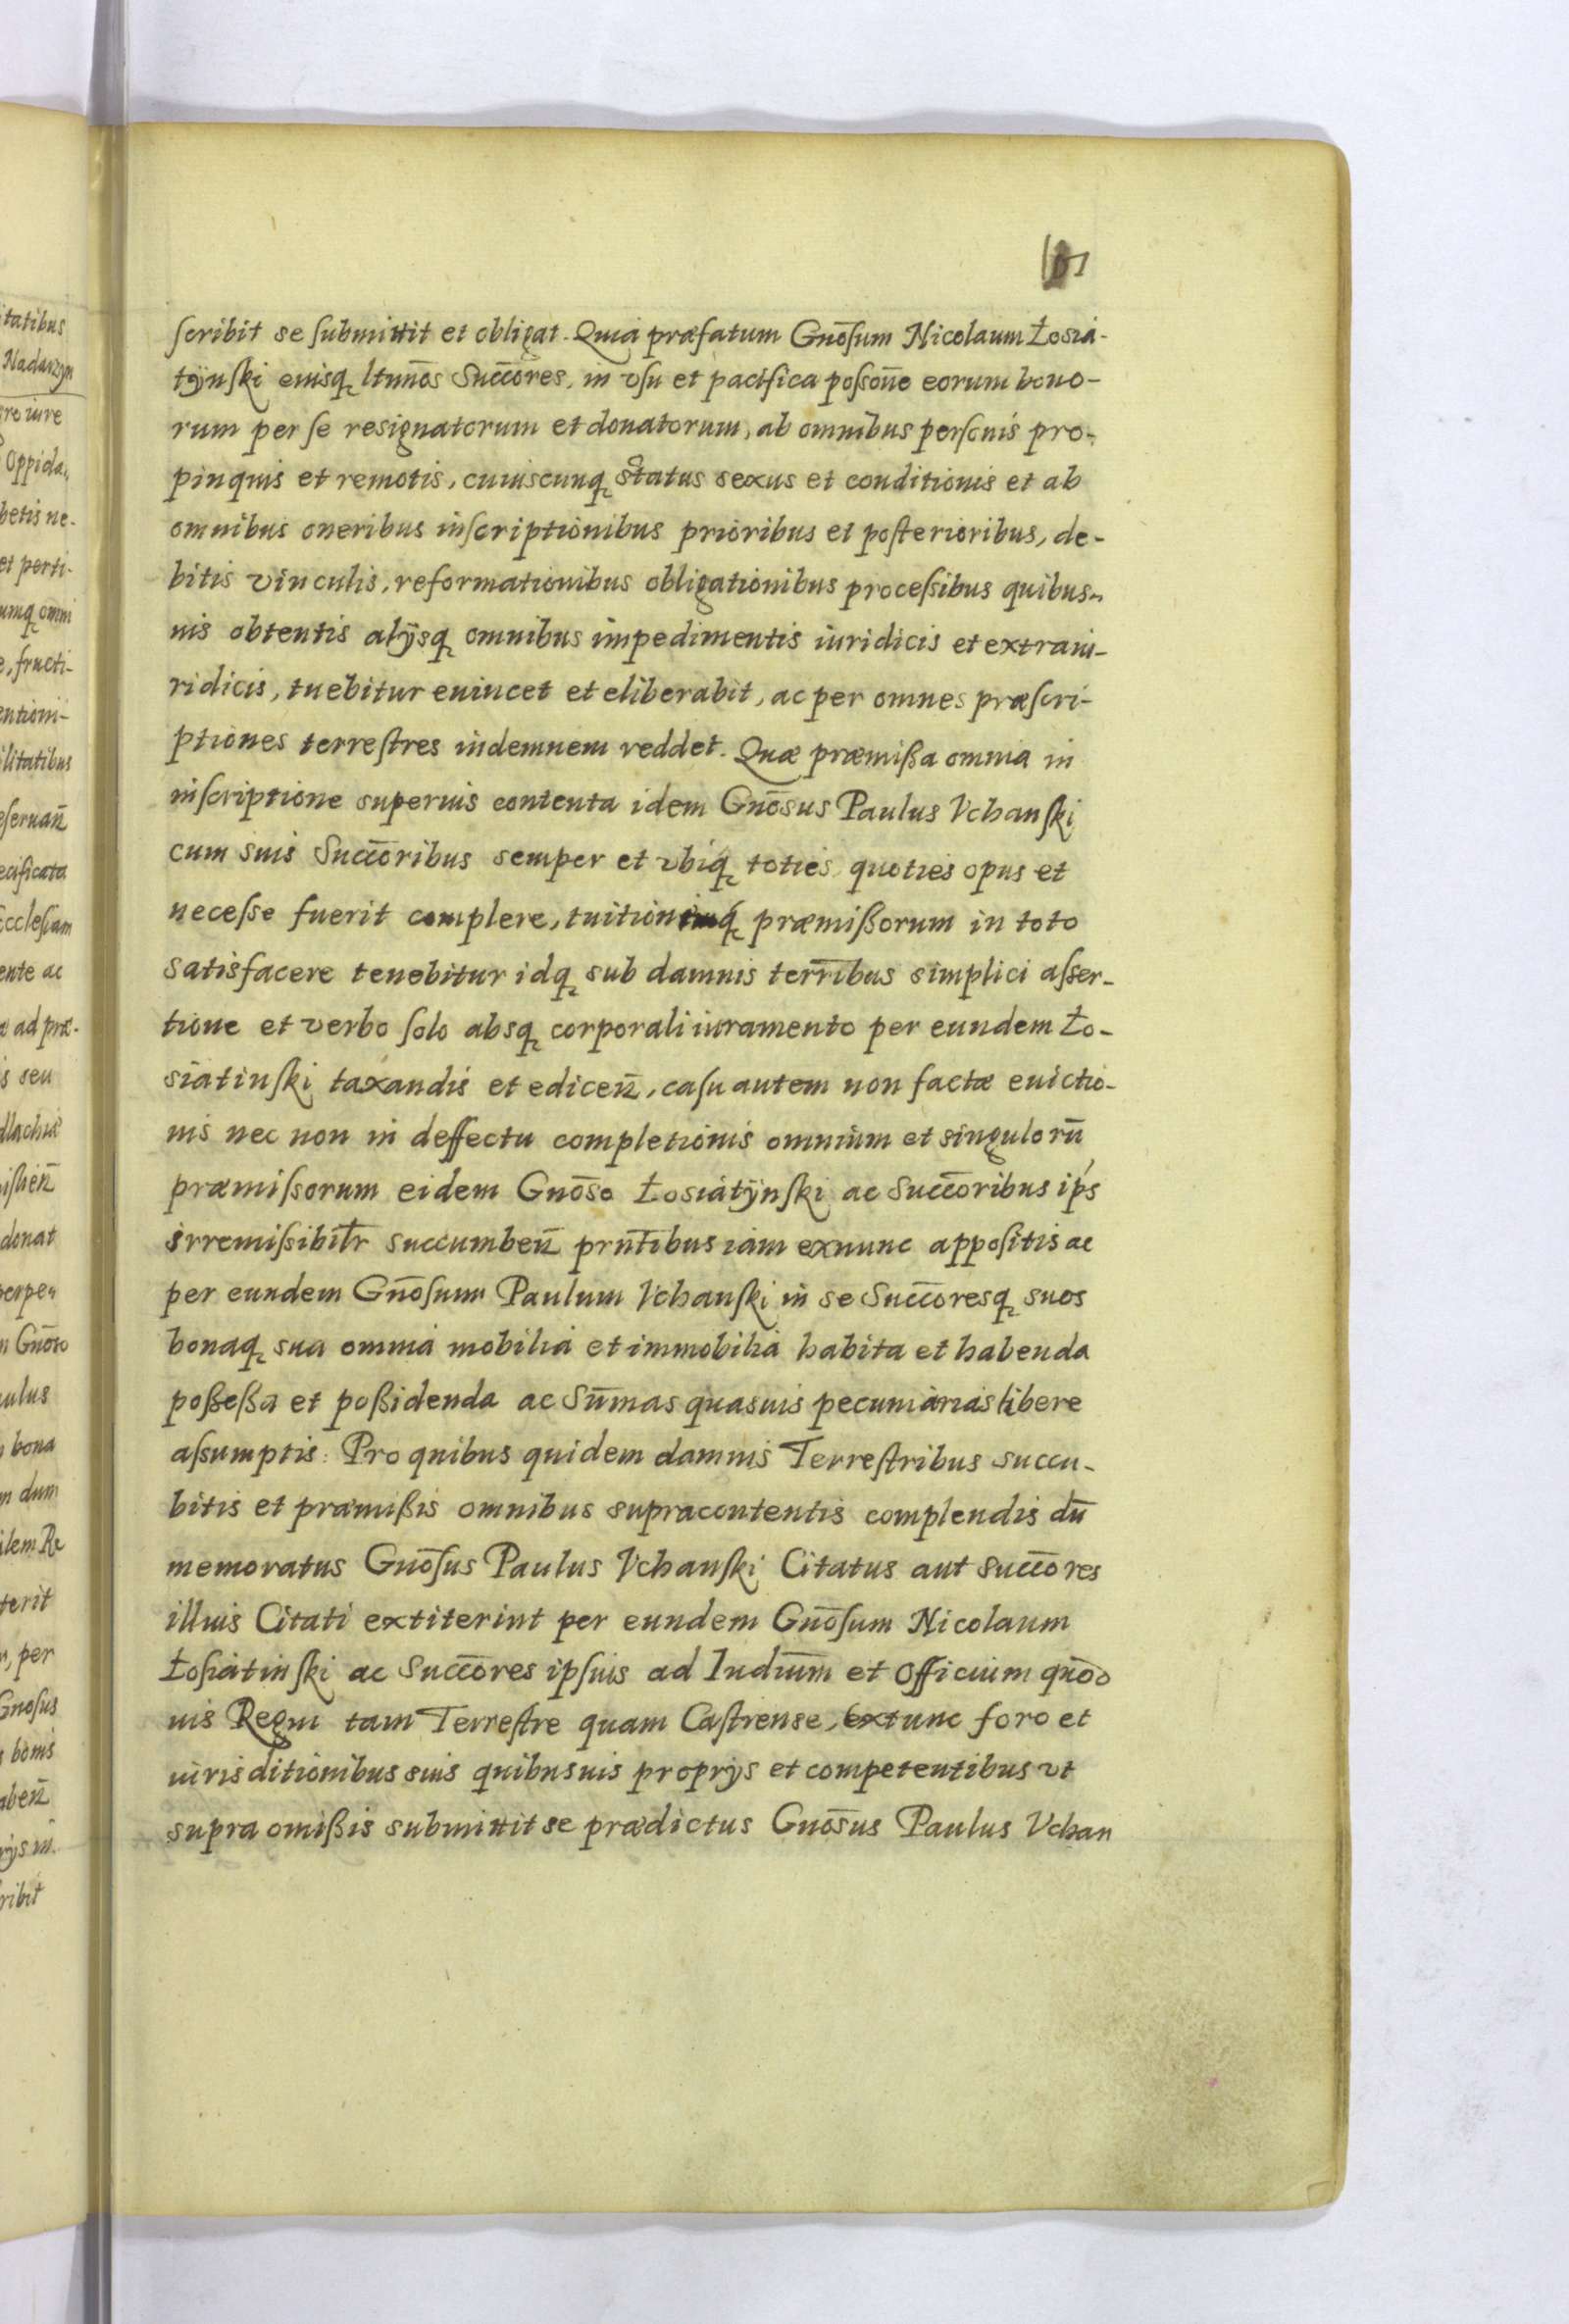 scribit se submittit et obligat. Quia præfatum Gnōsum Nicolaum Łosia-
tÿnski eiusq̨ ltmōs Succōres, in vsu et pacifica possōne eorum bono-
rum per se resignatorum et donatorum, ab omnibus personis pro-
pinquis et remotis, cuiuscunq̨ status sexus et conditionis et ab
omnibus oneribus inscriptionibus prioribus et posterioribus, de-
bitis vinculis, reformationibus obligationibus processibus quibus-
uis obtentis alÿsq̨ omnibus impedimentis iuridicis et extraiu-
ridicis, tuebitur euincet et eliberabit, ac per omnes præscri-
ptiones terrestres indemnem reddet. Quæ præmißa omnia in
inscriptione superius contenta idem Gnōsus Paulus Vchanski
cum suis Succōribus semper et vbiq̨ toties quoties opus et
necesse fuerit complere, tuitioniq̨ præmißorum in toto
satisfacere tenebitur idq̨ sub damnis terrībus simplici asser-
tione et verbo solo absq̨ corporali iuramento per eundem Ło-
siatinski taxandis et edicen̄, casu autem non factæ euictio-
nis nec non in deffectu completionis omnium et singulorū
præmissorum eidem Gnōso Łosiatÿnski ac Succōribus ip̄s
irremissibilr̄ succumben̄ prn̄tibus iam exnunc appositis ac
per eundem Gnōsum Paulum Vchanski in se Succōresq̨ suos
bonaq̨ sua omnia mobilia et immobilia habita et habenda
poßeßa et poßidenda ac Sūmas quasuis pecuniarias libere
assumptis: Pro quibus quidem damnis Terrestribus succu-
bitis et præmißis omnibus supracontentis complendis dū
memoratus Gnōsus Paulus Vchanski Citatus aut succōres
illius Citati extiterint per eundem Gnōsum Nicolaum
Łosiatinski ac Succōres ipsius ad Iudiūm et Officium quōd
uis Regni tam Terrestre quam Castrense, extunc foro et
iurisditionibus suis quibusuis proprÿs et competentibus vt
supra omißis submittit se prædictus Gnōsus Paulus Vchan